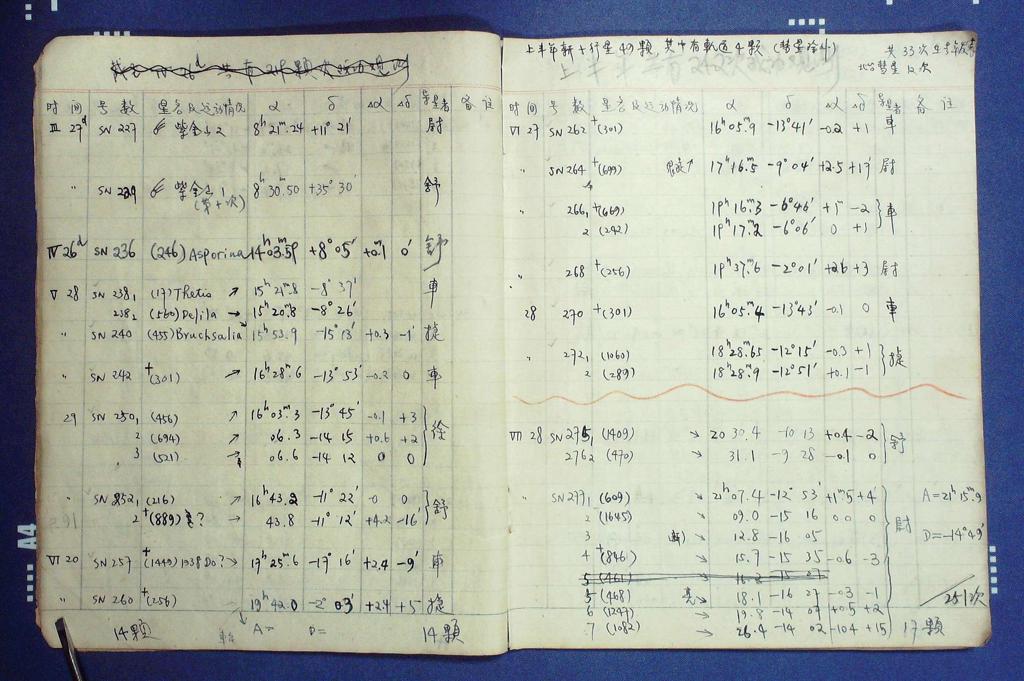 时间 号数 星名及运动情况 α δ Δα Δδ 导星者 备注
III 27d SN 227 紫金山2 8h 21m.24 +11° 21' 尉
〃 SN 229 紫金山1 8h 30m.50 +35° 30' 舒
(第十次)
IV 26d SN 236 (246) Asporina 14h 03m.59 +8° 05' +0m.1 0' 舒
V 28 SN 238,1 (17) Thetis → 15h 21m.8 -8° 37' 車
238,2 (560) Delila → 15h 20m.8 -8° 26'
〃 SN 240 (455) Bruchsalia 15h 53m.9 -15° 13' +0.3 -1' 捷
〃 SN 242 +(301) → 16h 28m.6 -13° 53' -0.2 0 車
29 SN 250,1 (456) ↗ 16h 03m.3 -13° 45' -0.1 +3 徐
2 (694) ↗ 06.3 -14 15 +0.6 +2
3 (521) → 06.6 -14 12 0 0
〃 SN 252,1 (216) ↗ 16h 43.2 -11° 22' 0 0 舒
2 +(889) ? → 43.8 -11° 12' +4.2 -16'
VI 20 SN 257 +(1449) 1938 DO? → 17h 25m.6 -17° 16' +2.4 -9' 車
〃 SN 260 +(256) 19h 42m.0 -2° 03' +2.4 +5 捷
14顆 A= D= 14顆
上半年新十行星49颗, 其中有軌道4颗 (彗星除外)
共33次
北台彗星12次
时间 号数 星名及运动情况 α δ Δα Δδ 导星者 备注
VI 27 SN 262 +(301) 16h 05m.9 -13° 41' -0.2 +1 車
〃 SN 264 +(699) 17h 16m.5 -9° 04' +2.5 +17' 尉
〃 266,1 +(669) 19h 16m.3 -6° 46' +1m -2 車
2 (242) 19h 17m.2 -6° 06' 0 +1
〃 268 +(256) 19h 37m.6 -2° 01' +2.6 +3 尉
28 270 +(301) 16h 05m.4 -13° 43' -0.1 0 車
〃 272,1 (1060) 18h 28m.65 -12° 15' -0.3 +1 捷
2 (289) 18h 28m.9 -12° 51' +0.1 -1
VII 28 SN 275,1 (1409) ↘ 20 30.4 -10 13 +0.4 -2 舒
276 2 (470) ↘ 31.1 -9 28 -0.1 0
〃 SN 277,1 (609) ↘ 21h 07m.4 -12° 53' +1m.5 +4' 尉 A=21h 15m.9
2 (1645) ↘ 09.0 -15 16 0.0 0
3 新) 12.8 -16 05 D=-14° 49'
4 +(846) ↘ 15.7 -15 35 -0.6 -3
5 (461) 16.2 -15 07
5 (468) 亮 ↘ 18.1 -16 27 -0.3 -1 251次
6 (1247) ↘ 19.8 -14 07 +0.5 +2
7 (1082) → 26.4 -14 02 -10.4 +15 17顆
A4